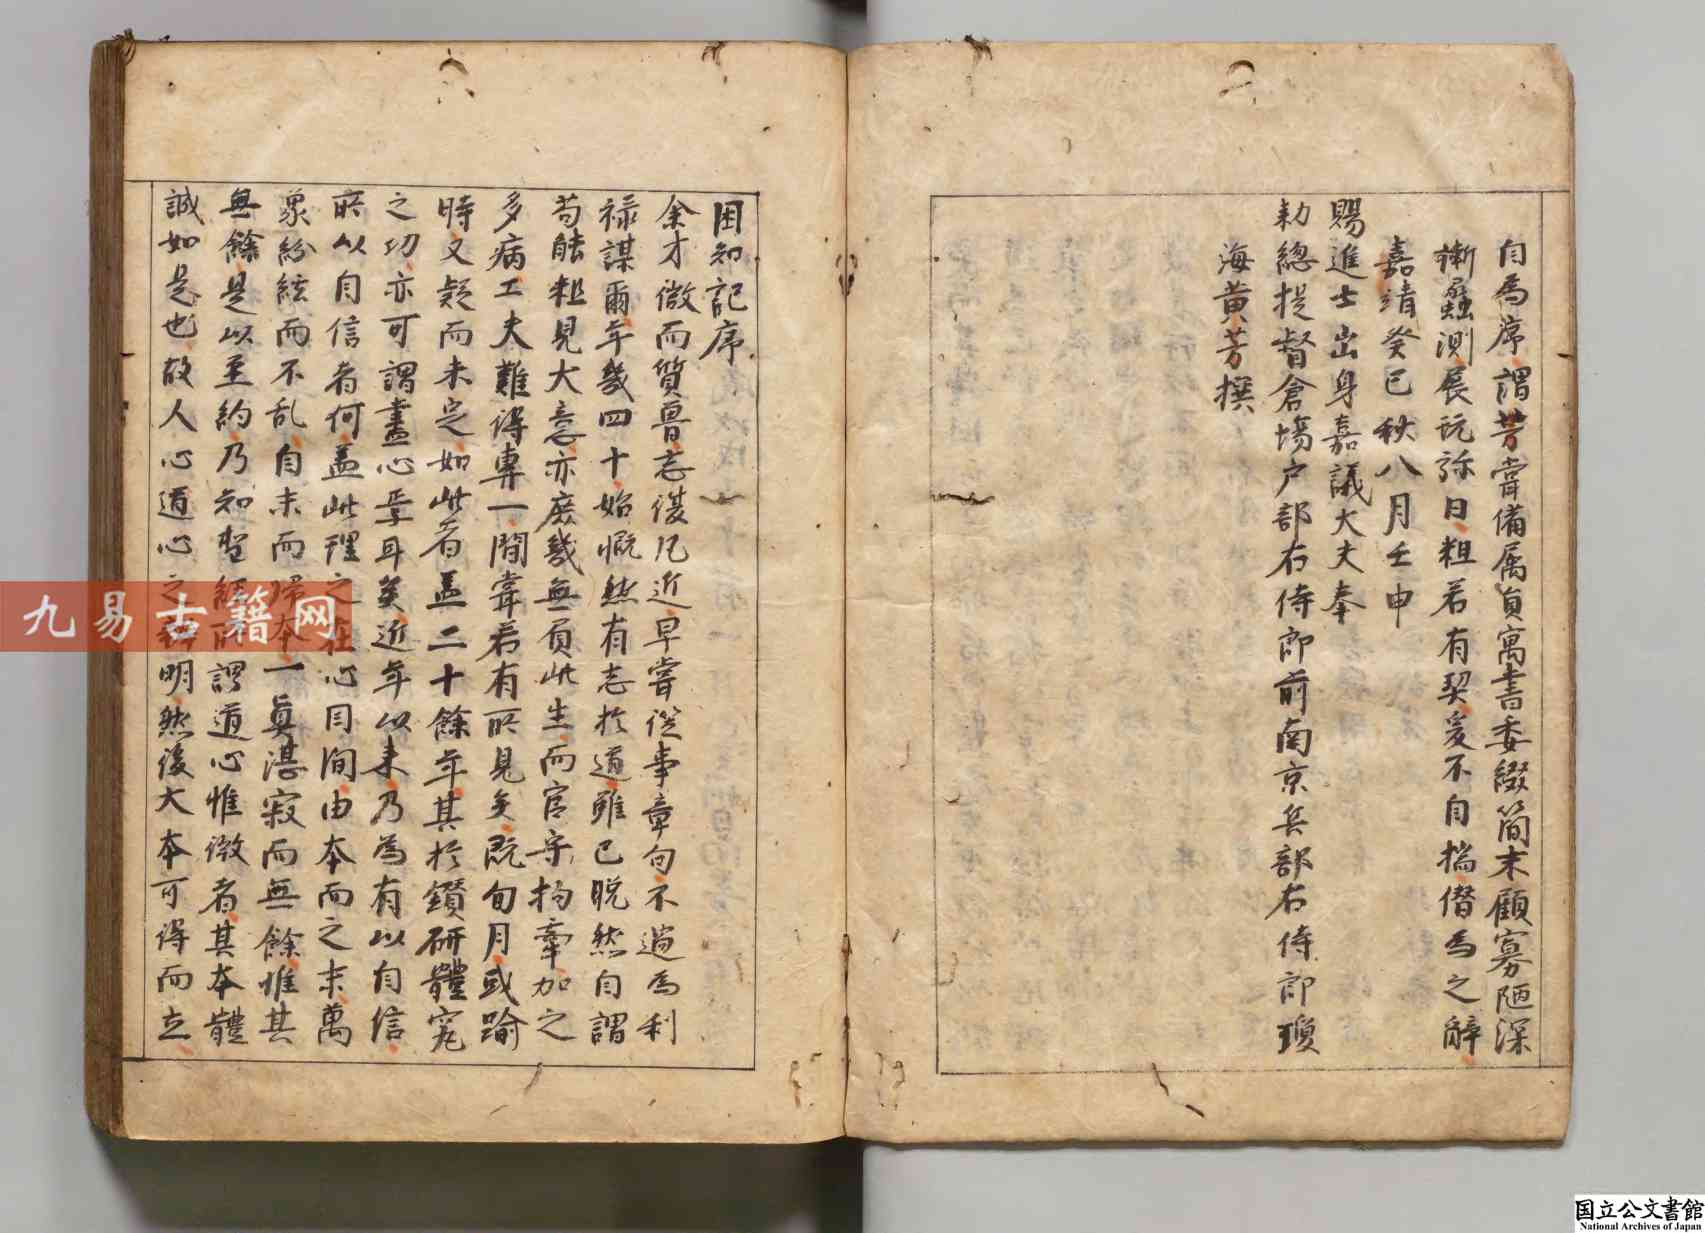 自為序謂芳嘗備属員寓書委綴簡末顧寡陋深
慚蠡測展玩弥日粗若有契爰不自揣僣為之辭
嘉靖癸巳秋八月壬申
賜進士出身嘉議大夫奉
勑總提督倉塲户部右侍郎前南京兵部右侍郎瓊
海黄芳撰
困知記序
余才微而質魯志復凡近早嘗從事章句不過為利
禄謀爾年幾四十始慨然有志於道雖已晚然自謂
苟能粗見大意亦庶幾無負此生而官守拘牽加之
多病工夫難得專一間嘗若有所見矣既旬月或踰
時又疑而未定如此者盖二十餘年其於鑽研體究
之功亦可謂盡心焉耳矣近年以来乃為有以自信
所以自信者何盖此理之在心目間由本而之末萬
象紛紜而不乱自末而歸本一真湛寂而無餘惟其
無餘是以至約乃知聖經所謂道心惟微者其本體
誠如是也故人心道心之辨明然後大本可得而立
九易古籍网
国立公文書館
National Archives of Japan